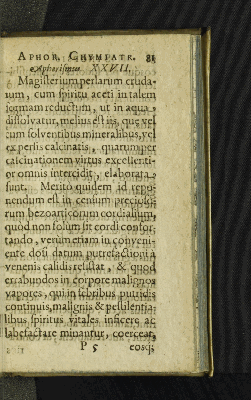 APHOR. CHYMPATR. 81
Aphorismus XXVII.
Magisterium perlarum cruda-
rum, cum spiritu aceti in talem
formam reductum, ut in aqua
dissolvatur, melius est iis, quæ vel
cum solventibus mineralibus, vel
ex perlis calcinatis, quarum per
calcinationem virtus excellenti-
or omnis intercidit, elaborata
sunt. Merito quidem id repo-
nendum est in censum precioso-
rum bezoarticorum cordialium,
quod non solum sit cordi confor-
tando, verum etiam in conveni-
ente dosi datum putrefactioni a
venenis calidis resistat, & quod
errabundos in corpore malignos
vapores, qui in febribus putridis
continuis, malignis & pestilentia-
libus spiritus vitales inficere ac
labefactare minantur, coerceat,
P 5 eosq;